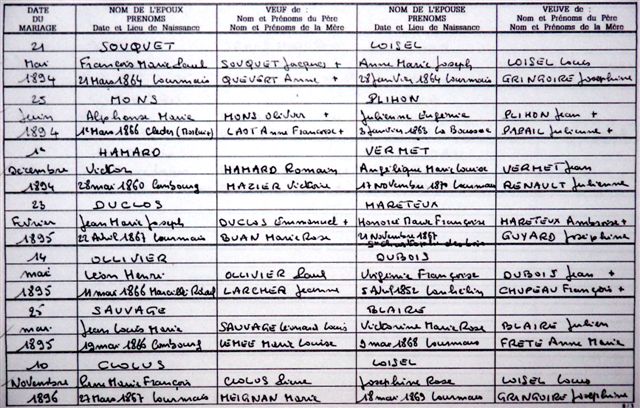 DATE DU MARIAGE NOM DE L'EPOUX PRENOMS Date et Lieu de Naissance VEUF de : Nom et Prénoms du Père Nom et Prénoms de la Mère NOM DE L'EPOUSE PRENOMS Date et Lieu de Naissance VEUVE de : Nom et Prénoms du Père Nom et Prénoms de la Mère
21 SOUQUET LOISEL
Mai François Marie Paul SOUQUET Jacques + Anne Marie Joseph LOISEL Louis
1894 21 Mars 1864 Lourmais QUEVERT Anne + 28 Janvier 1864 Lourmais GRINGOIRE Joséphine
25 MONS PLIHON
Juin Alphonse Marie MONS Olivier + Julienne Eugénie PLIHON Jean +
1894 1er Mars 1866 Cleder LAOT Anne Françoise + 3 Janvier 1863 La Boussac PAPAIL Julienne +
1er HAMARD VERMET
Décembre Victor HAMARD Romain Angélique Marie Louise VERMET Jean
1894 28 mai 1860 Combourg MAZIER Victoire 17 Novembre 1870 Lourmais RENAULT Julienne
23 DUCLOS MARETEUX
Février Jean Marie Joseph DUCLOS Emmanuel + Honorée Marie Françoise MARETEUX Ambroise +
1895 22 Avril 1867 Lourmais BUAN Marie Rose 21 Novembre 1867 GUYARD Joséphine
14 OLLIVIER DUBOIS
mai Léon Henri OLLIVIER Paul Virginie Françoise DUBOIS Jean +
1895 11 mai 1866 Marcillé Raoul LARCHER Jeanne 5 Avril 1852 Lanhélin CHUPEAU François +
25 SAUVAGE BLAIRE
mai Jean Louis Marie SAUVAGE Léonard Louis Victorine Marie Rose BLAIRE Julien
1895 19 mai 1866 Combourg LEMEE Marie Louise 9 mai 1868 Lourmais FRETE Anne Marie
10 CLOLUS LOISEL
Novembre Pierre Marie François CLOLUS Pierre Joséphine Rose LOISEL Louis
1896 27 Mars 1867 Lourmais MEIGNAN Marie 18 mai 1869 Lourmais GRINGOIRE Joséphine